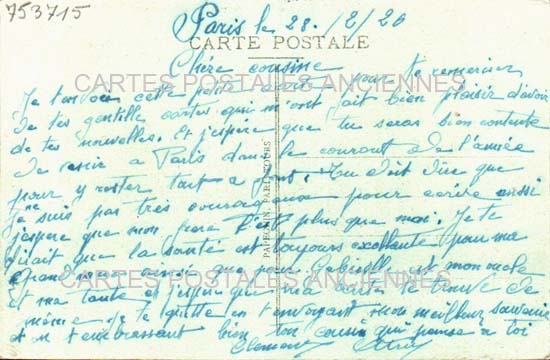 753715
Paris le 28. /2/20
CARTE POSTALE
Chère cousine
CARTES POSTALES ANCIENNES
Je t'envoie cette petite carte pour te remercier
de tes gentille cartes qui m'ont fait bien plaisir d'avoir
de tes nouvelles. Et j'espère que tu seras bien contente
de venir à Paris dans le courant de l'année
pour y rester tout a fait. Tu doit dire que
je suis pas très courageux pour écrire aussi
j'espère que mon père l'est plus que moi. Je te
dirait que la santé est toujours excellente pour ma
ainsi que pour Gabrielle et mon oncle
et ma tante et j'espère que ma carte te trouve de
même. Je te quitte en t'envoyant mon meilleur souvenir
et en t'embrassant bien ton cousin qui pense à toi
Clément
CARTES POSTALES ANCIENNES